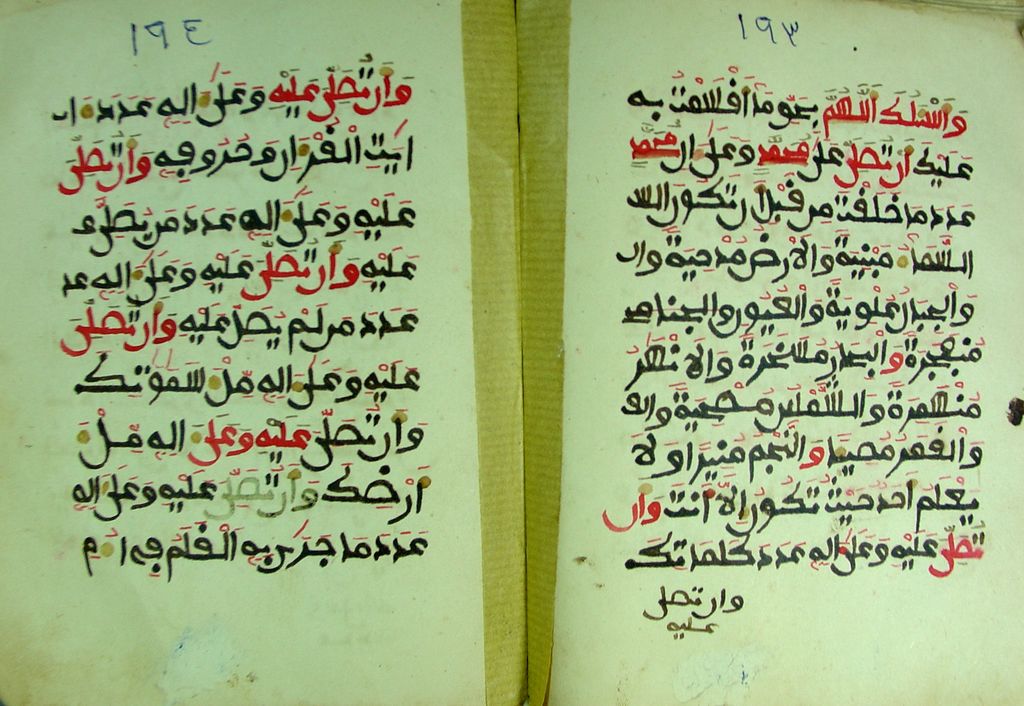 ١٩٣
واسلك اللهم بحق ما اقسمت به
عليك ان تصلي على محمد وعلى ال محمد
عدد ما خلقت من قبل ان تكون الس
السماء مبنية والارض مدحية وال
والجبال علوية والعيون
منفجرة والبحار مسخرة والانهار
منهمرة والشمس مضحية والق
والقمر مضيا والنجم منيرا ولا
يعلم احد حيث تكون الا انت وان
تصلي عليه وعلى اله عدد كلماتك
وان تصل
عليه
١٩٤
وان تصلي عليه وعلى اله عدد ا
ايت القران وحروفه وان تصلي
عليه وعلى اله عدد من يصلي
عليه وان تصلي عليه وعلى اله عد
عدد من لم يصل عليه وان تصلي
عليه وعلى اله مل سموتك
وان تصلي عليه وعلى اله مل
ارضك وان تصلي عليه وعلى اله
عدد ما جرى به القلم في ام